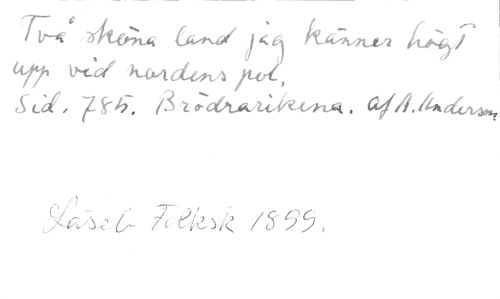 Två sköna land jag känner högt
upp vid nordens pol.
Sid. 785. Brödrarikena. af A. Anderson
Läseb Folksk 1899.